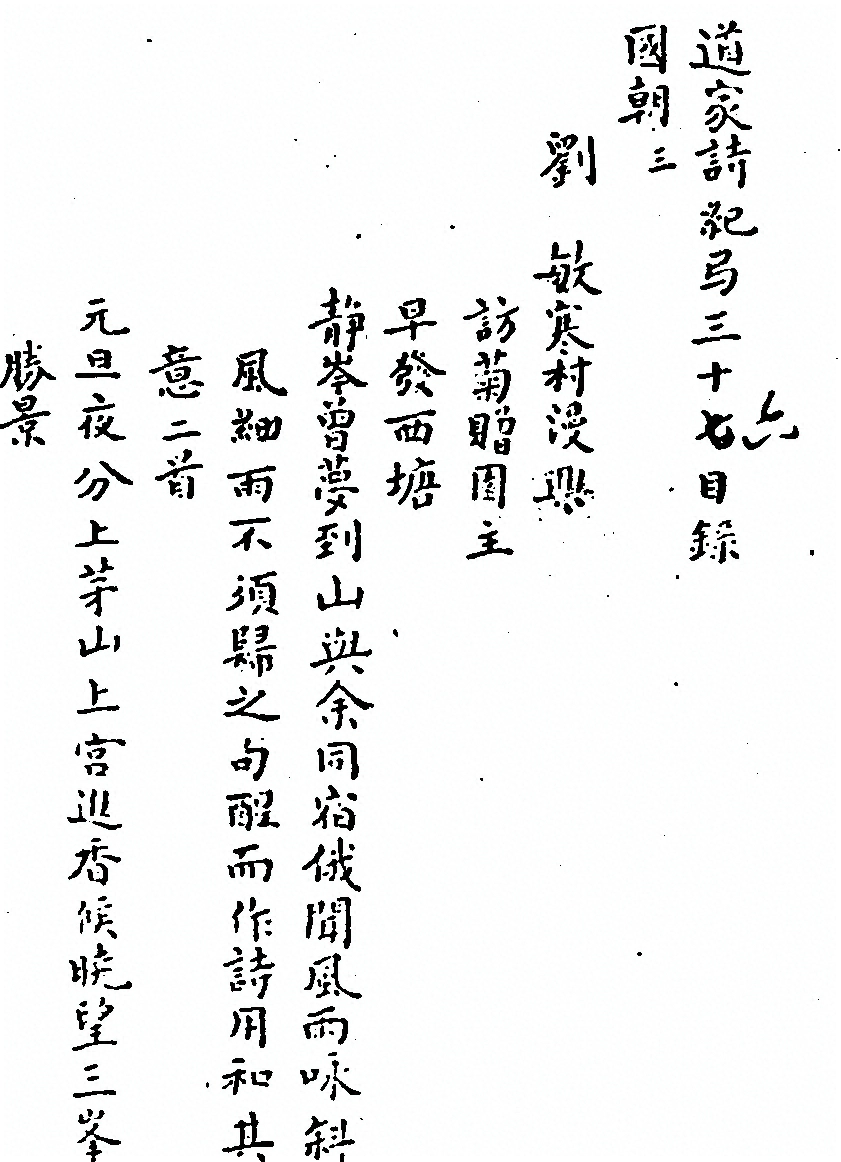 道家詩紀弓三十七目錄
六
國朝三
劉敏
寒村漫興
訪菊贈園主
早發西塘
靜岑曾夢到山與余同宿俄聞風雨咏斜
風細雨不須歸之句醒而作詩用和其
意二首
元旦夜分上茅山上宮進香候曉望三峯
勝景